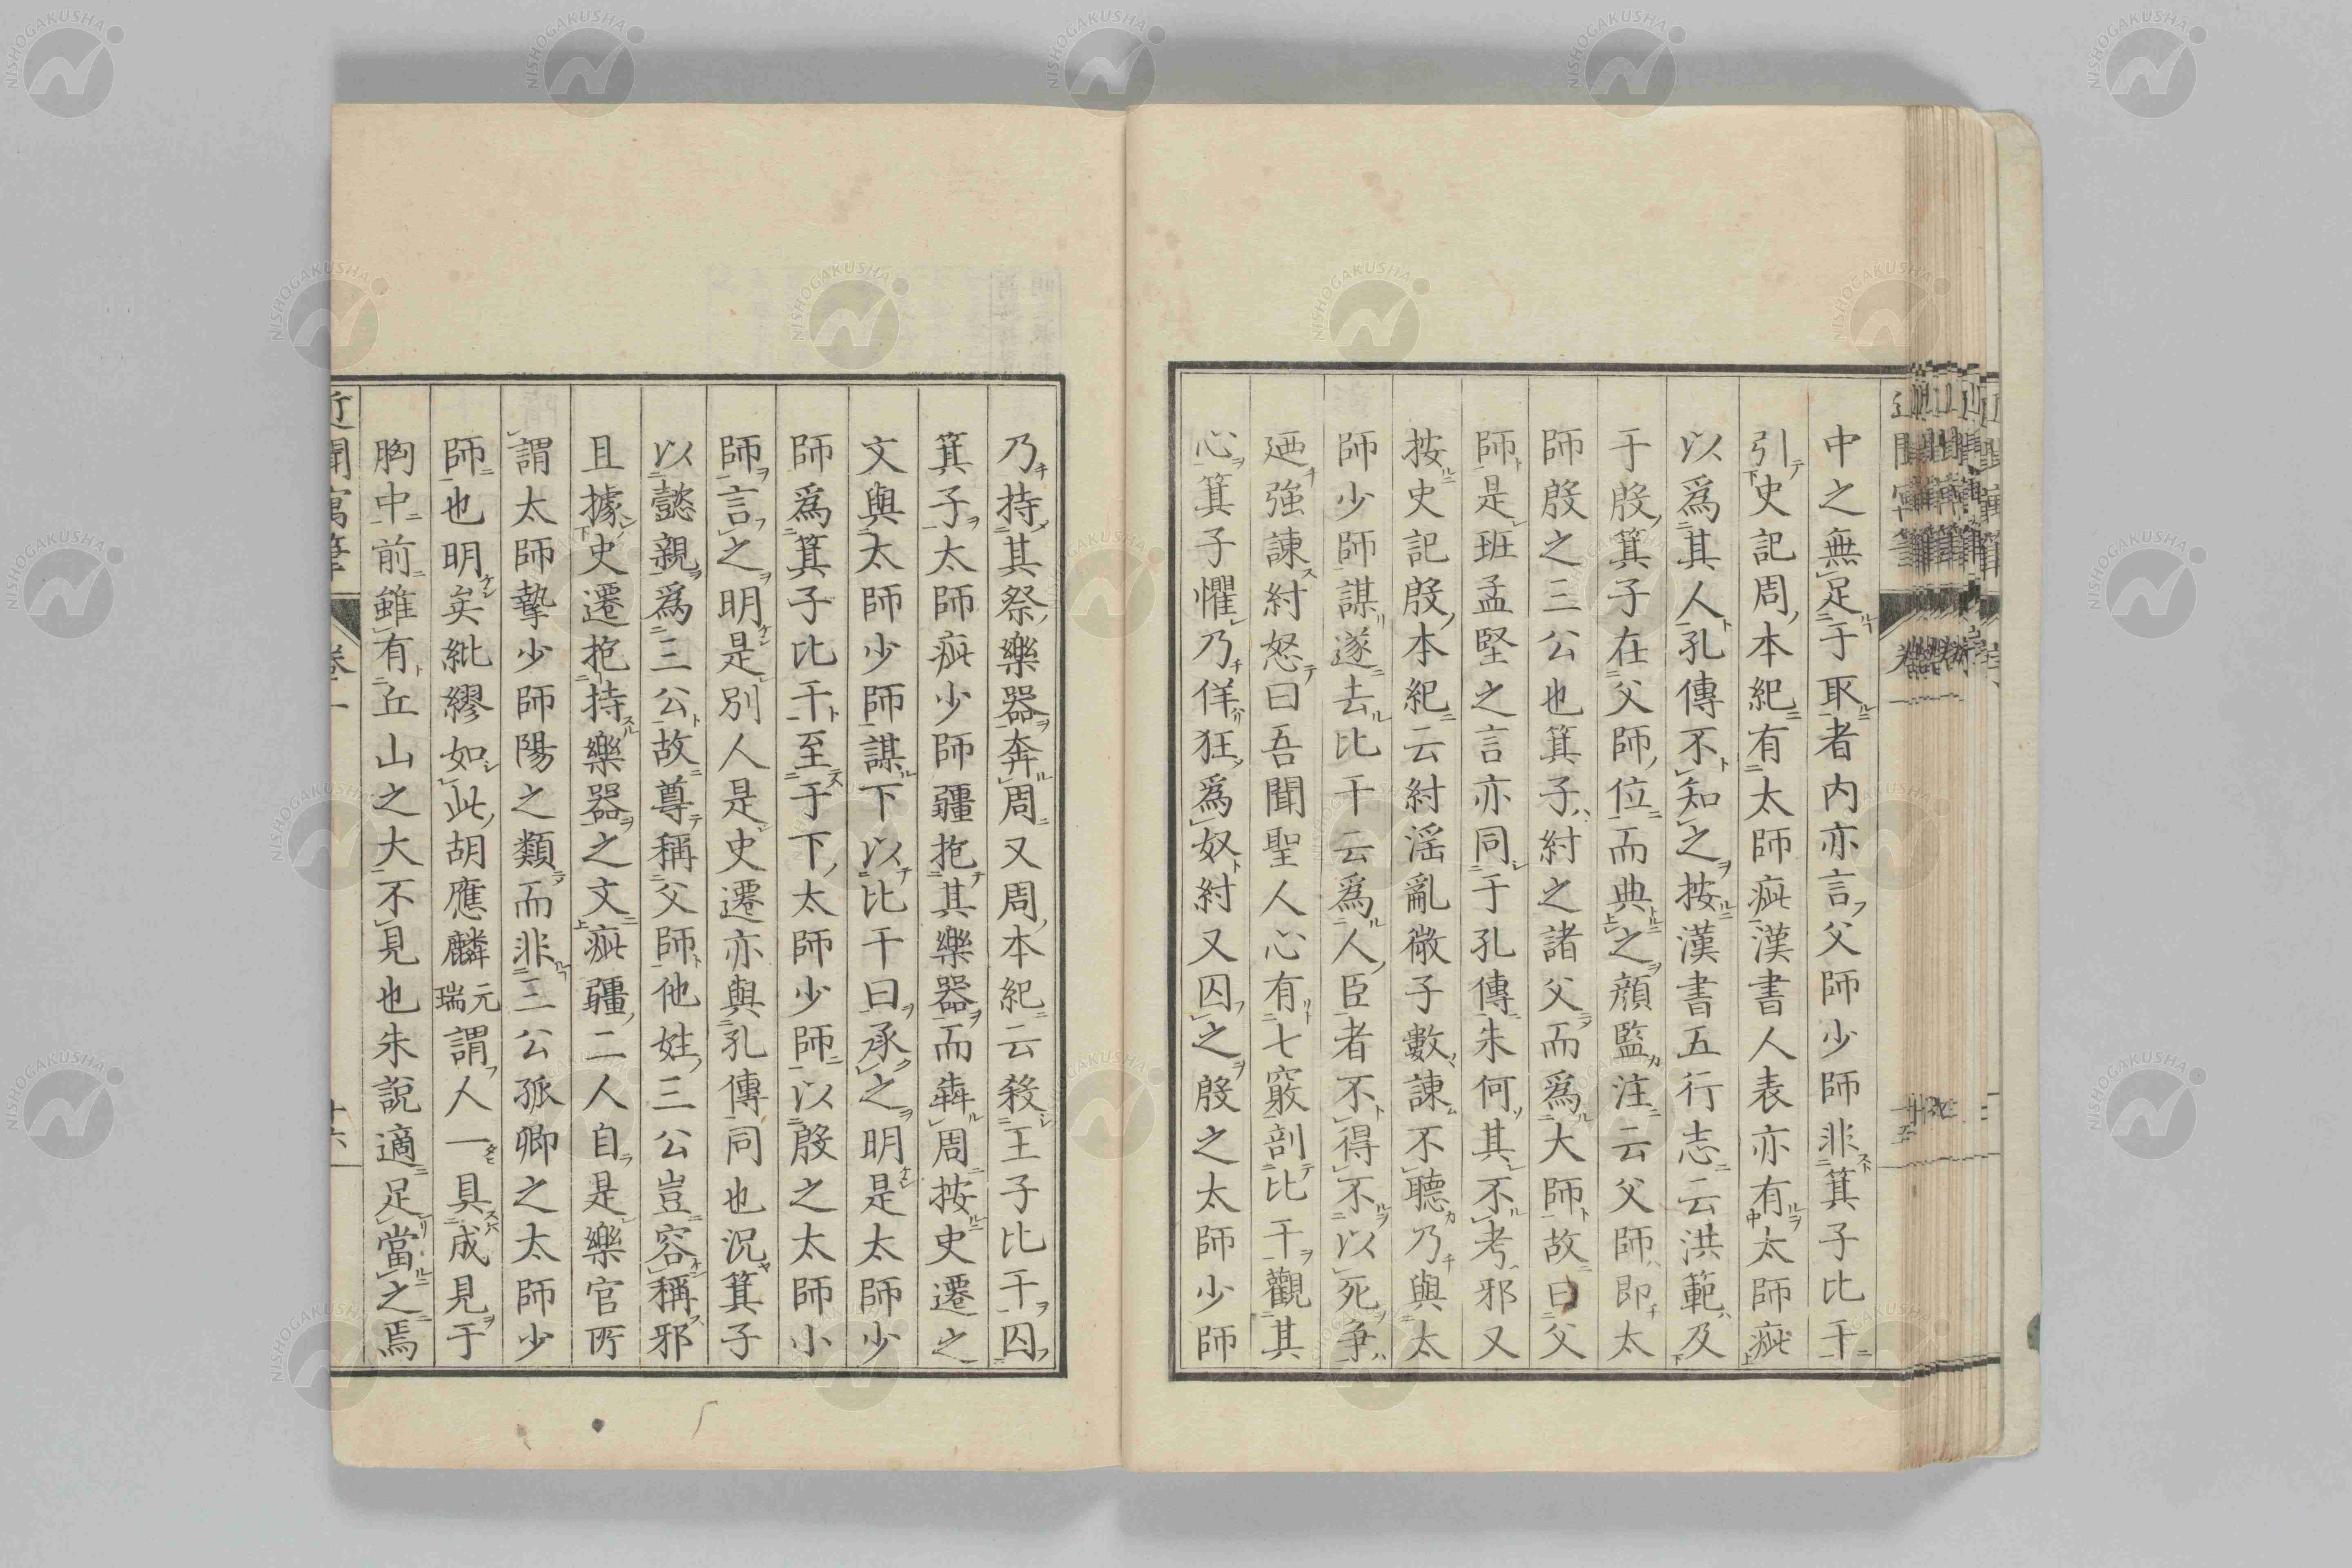 中之無足于取者内亦言父師少師非箕子比干
引史記周本紀有太師疵漢書人表亦有太師疵
以爲其人孔傳不知之按漢書五行志云洪範及
于殷箕子在父師位而典之顔監注云父師即太
師殷之三公也箕子紂之諸父而爲大師故曰父
師是班孟堅之言亦同于孔傳朱何其不考邪又
按史記殷本紀云紂滛亂微子數諌不聽乃與太
師少師謀遂去比干云爲人臣者不得不以死争
迺強諌紂怒曰吾聞聖人心有七竅剖比干觀其
心箕子懼乃佯狂爲奴紂又囚之殷之太師少師
乃持其祭樂器奔周又周本紀云殺王子比干囚
箕子太師疵少師疆抱其樂器而犇周按史遷之
文與太師少師謀下以比干曰承之明是太師少
師爲箕子比干至于下太師少師以殷之太師小
師言之明是別人是史遷亦與孔傳同也況箕子
以懿親爲三公故尊稱父師他姓三公豈容稱邪
且據史遷抱持樂器之文疵疆二人自是樂官所
謂太師摯少師陽之類而非三公孤卿之太師少
師也明矣紕繆如此胡應麟元瑞謂人一具成見于
胸中前雖有丘山之大不見也朱說適足當之焉
近聞寓筆 卷一
NISHOGAKUSHA